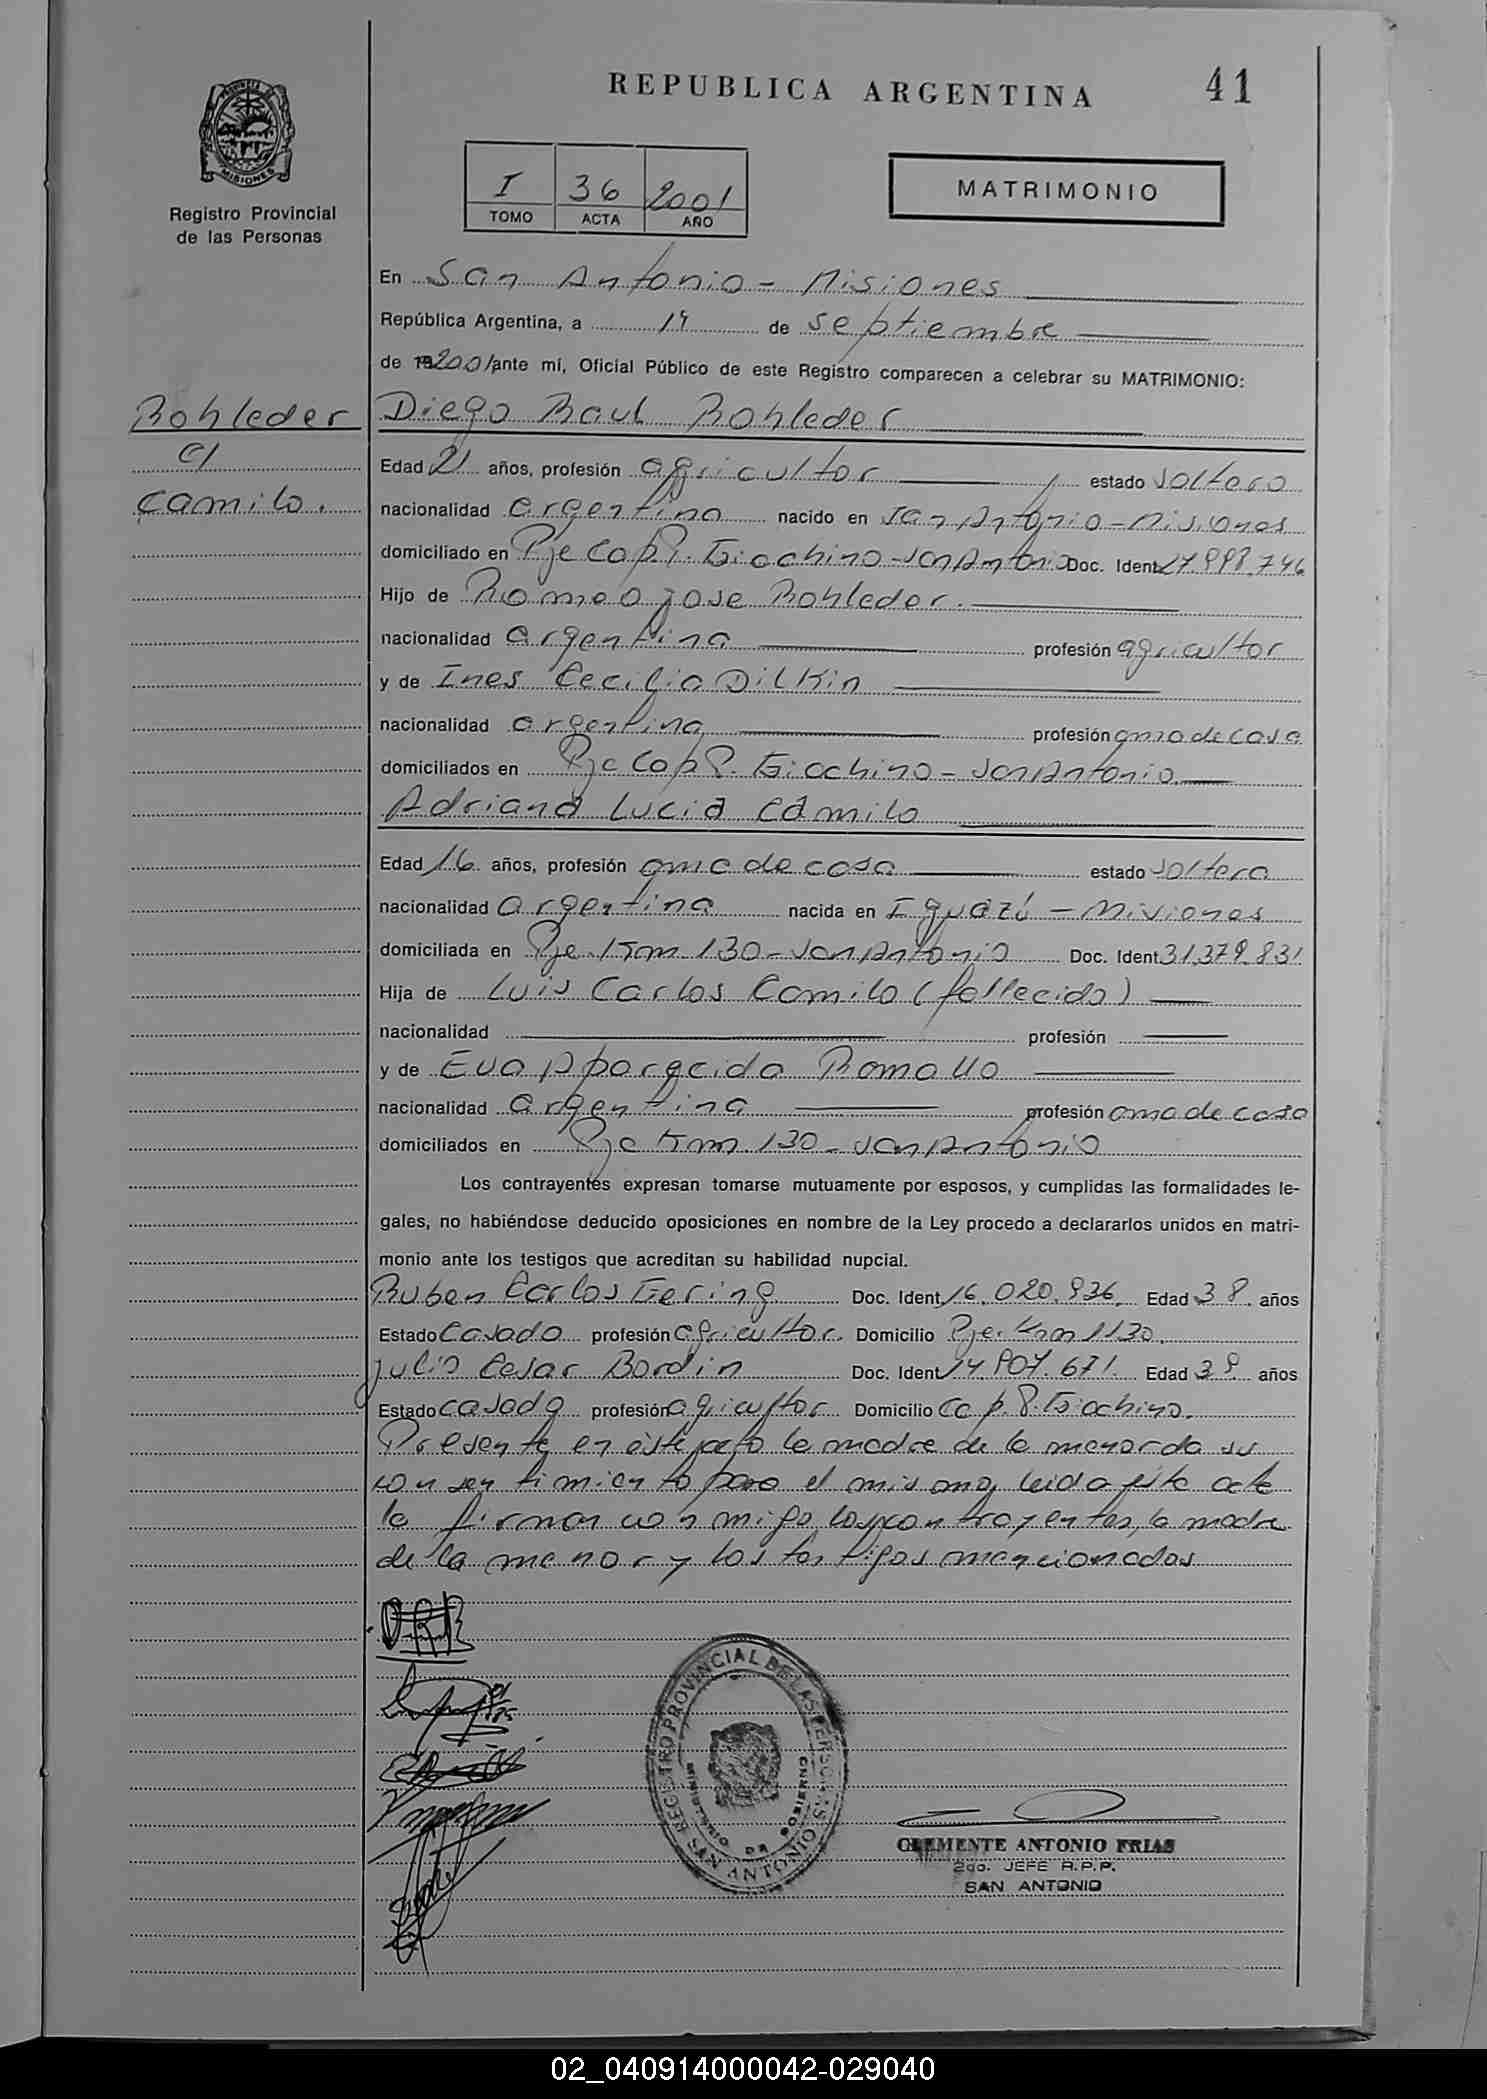 REPUBLICA ARGENTINA
41
PROVINCIA DE
MISIONES
Registro Provincial
de las Personas
I 36 2001
TOMO ACTA AÑO
MATRIMONIO
En San Antonio - Misiones
República Argentina, a 14 de septiembre
de 2001 ante mí, Oficial Público de este Registro comparecen a celebrar su MATRIMONIO:
Rohleder
c/
Camilo.
Diego Raul Rohleder
Edad 21 años, profesión agricultor estado soltero
nacionalidad argentina nacido en San Antonio - Misiones
domiciliado en Pje Cap. P. Giachino - San Antonio Doc. Ident 27.998.746
Hijo de Romeo Jose Rohleder.
nacionalidad argentina profesión agricultor
y de Ines Cecilia Dilkin
nacionalidad argentina profesión ama de casa
domiciliados en Pje Cap P. Giachino - San Antonio
Adriana Lucia Camilo
Edad 16 años, profesión ama de casa estado soltera
nacionalidad argentina nacida en Iguazú - Misiones
domiciliada en Pje. Km 130 - San Antonio Doc. Ident 31.379.831
Hija de Luis Carlos Camilo (fallecido)
nacionalidad profesión
y de Eva Apparecida Romallo
nacionalidad argentina profesión ama de casa
domiciliados en Pje Km 130 - San Antonio
Los contrayentes expresan tomarse mutuamente por esposos, y cumplidas las formalidades le-
gales, no habiéndose deducido oposiciones en nombre de la Ley procedo a declararlos unidos en matri-
monio ante los testigos que acreditan su habilidad nupcial.
Ruben Carlos Gering Doc. Ident 16.020.936. Edad 38 años
Estado casado profesión agricultor. Domicilio Pje. Km 1130.
Julio Cesar Bordin Doc. Ident 14.907.671. Edad 39 años
Estado casado profesión agricultor Domicilio Cap. P. Giachino.
Presente en éste acto la madre de la menor da su
consentimiento para el mismo, leida ésta acta
la firman conmigo los contrayentes, la madre
de la menor y los testigos mencionados
REGISTRO PROVINCIAL DE LAS PERSONAS
MINISTERIO DE GOBIERNO
SAN ANTONIO
CLEMENTE ANTONIO FRIAS
2do. JEFE R.P.P.
SAN ANTONIO
02_040914000042-029040